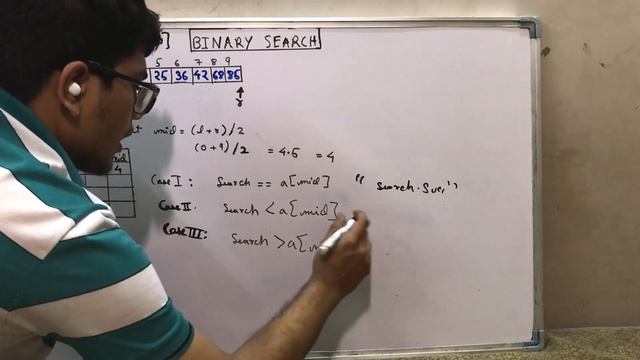 ] BINARY SEARCH
5 6 7 8 9
25 36 42 68 86
r
mid = (l+r)/2
(0+9)/2 = 4.5 = 4
4
Case I: Search == a[mid] " Search.Suc "
Case II: Search < a[mid]
Case III: Search > a[m